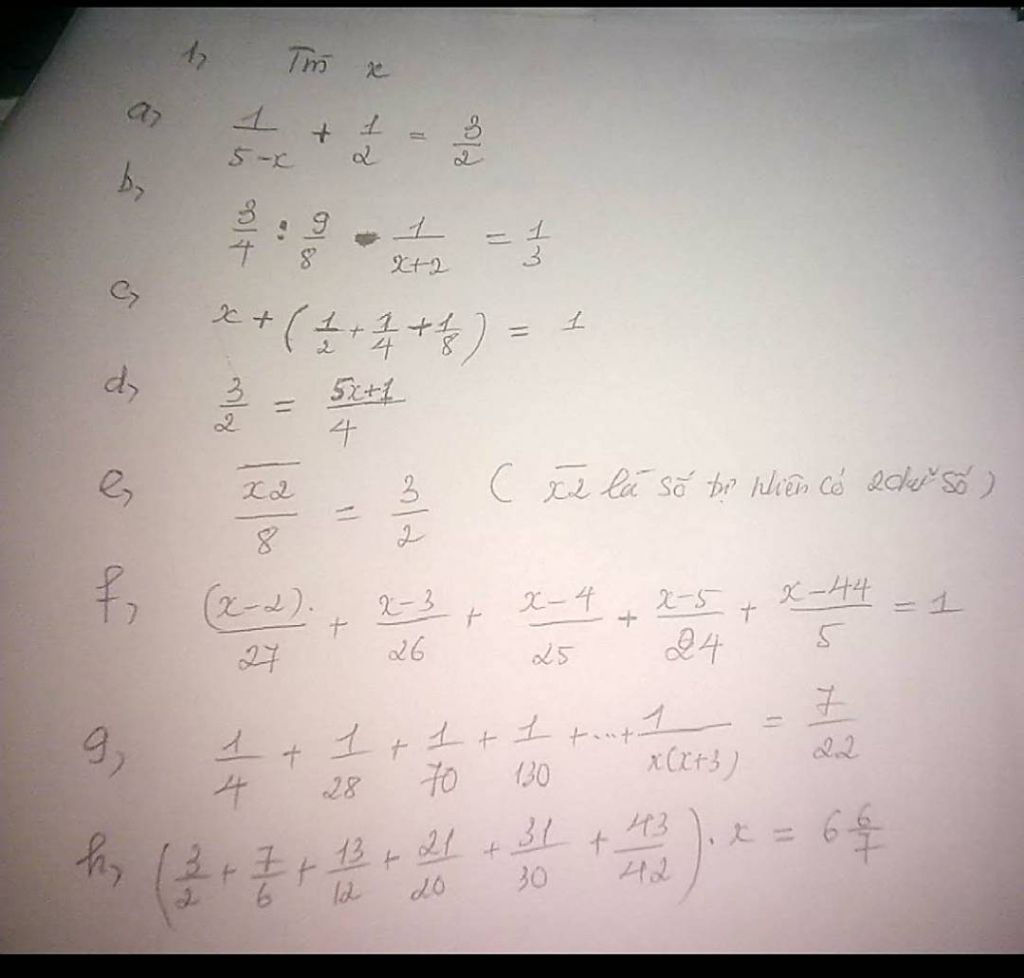 1, Tìm x
a, 1/(5-x) + 1/2 = 3/2
b, 3/4 : 9/8 - 1/(x+2) = 1/3
c, x + (1/2 + 1/4 + 1/8) = 1
d, 3/2 = (5x+1)/4
e, x̅2̅/8 = 3/2 ( x̅2̅ là số tự nhiên có 2 chữ số )
f, (x-2)./27 + (x-3)/26 + (x-4)/25 + (x-5)/24 + (x-44)/5 = 1
g, 1/4 + 1/28 + 1/70 + 1/130 + ...+ 1/x(x+3) = 7/22
h, (3/2 + 7/6 + 13/12 + 21/20 + 31/30 + 43/42) . x = 6 6/7